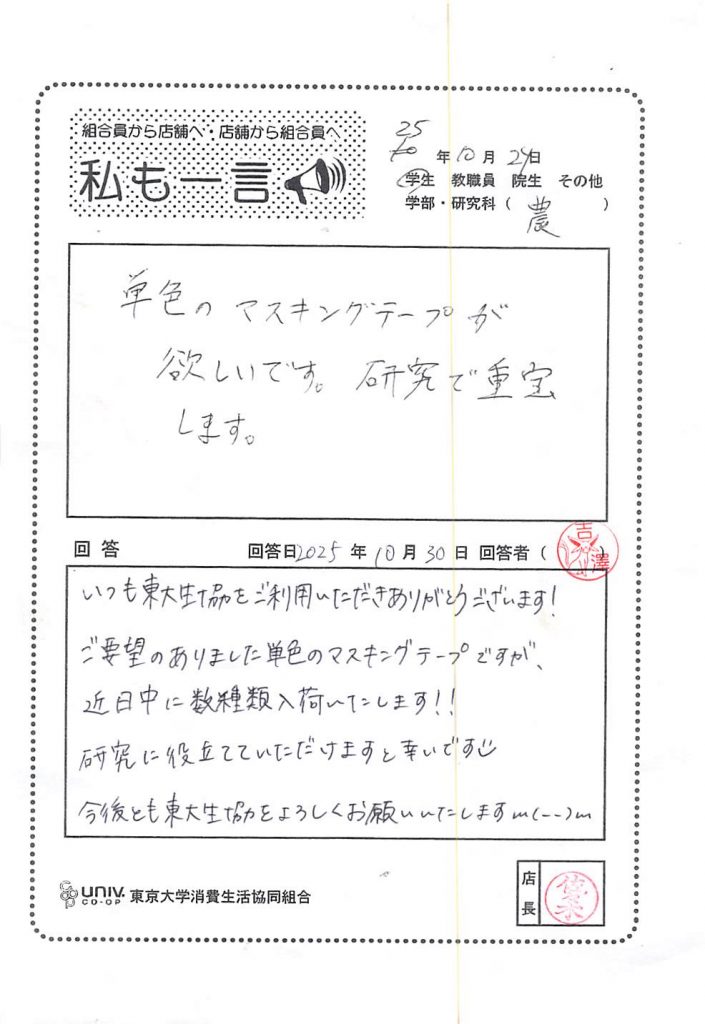 組合員から店舗へ・店舗から組合員へ
私も一言
25
年10月24日
学生 教職員 院生 その他
学部・研究科(農)
単色のマスキングテープが
欲しいです。研究で重宝
します。
回答 回答日2025年10月30日 回答者(吉澤)
いつも東大生協をご利用いただきありがとうございます!
ご要望のありました単色のマスキングテープですが、
近日中に数種類入荷いたします!!
研究に役立てていただけますと幸いです
今後とも東大生協をよろしくお願いいたしますm(--)m
UNIV. CO-OP 東京大学消費生活協同組合
店長